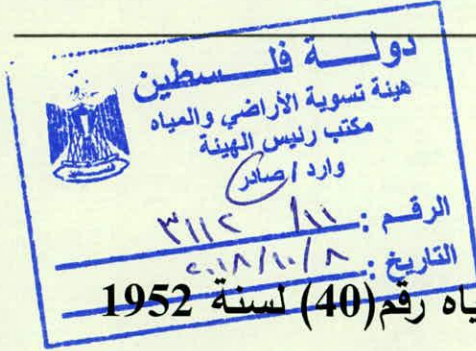 دولة فلسطين
هيئة تسوية الأراضي والمياه
مكتب رئيس الهيئة
وارد / صادر
الرقم : ١١ / ٣١١٢
التاريخ : ٢٠١٨/١٠/٨
ياه رقم(40) لسنة 1952